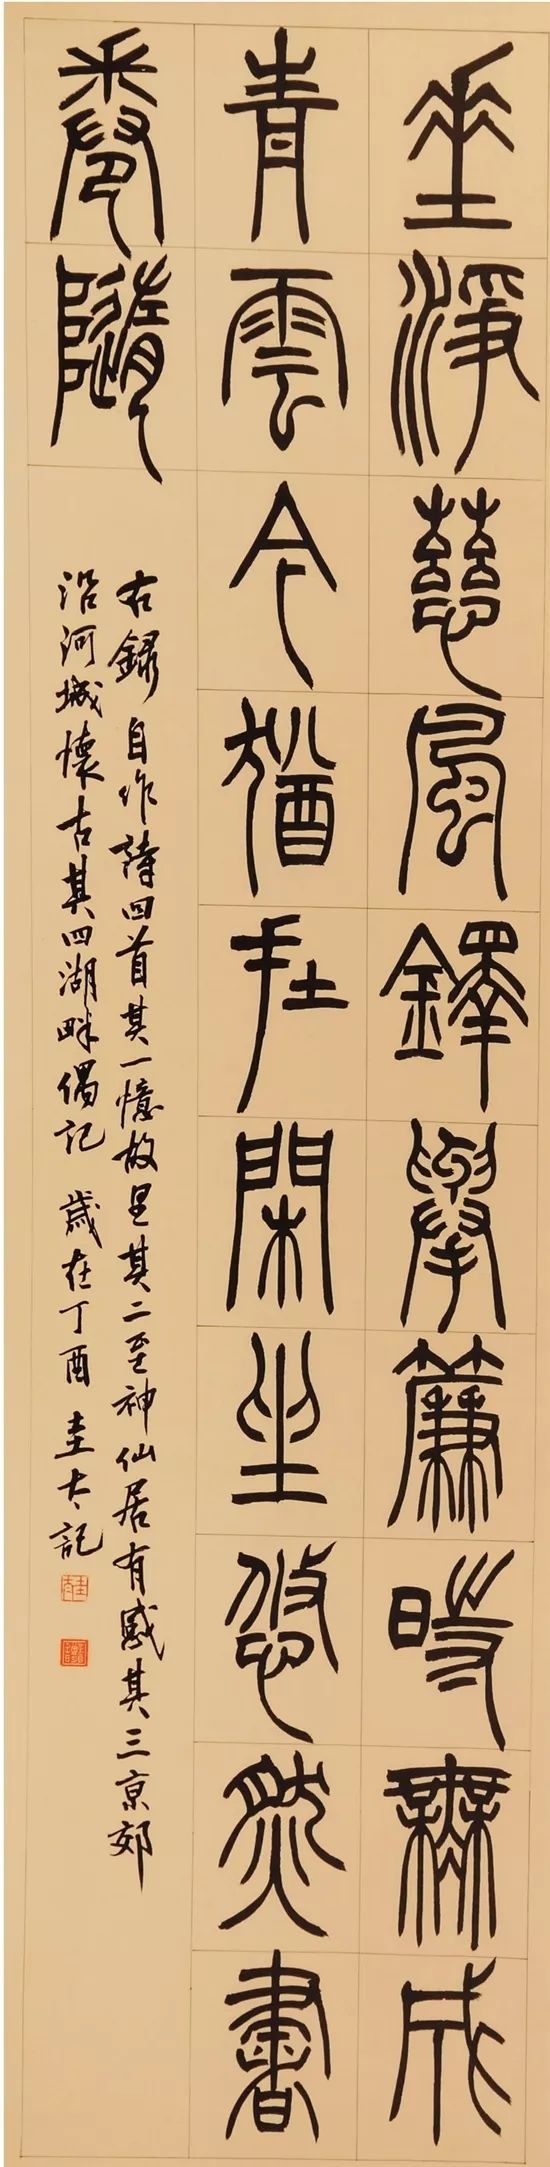 垂淨慈風鐸舉簾時無成
青雲今猶在閑坐悠然書
卷隨
右錄自作詩四首其一憶故里其二至神仙居有感其三京郊
沿河城懷古其四湖畔偶記 歲在丁酉 圭大記